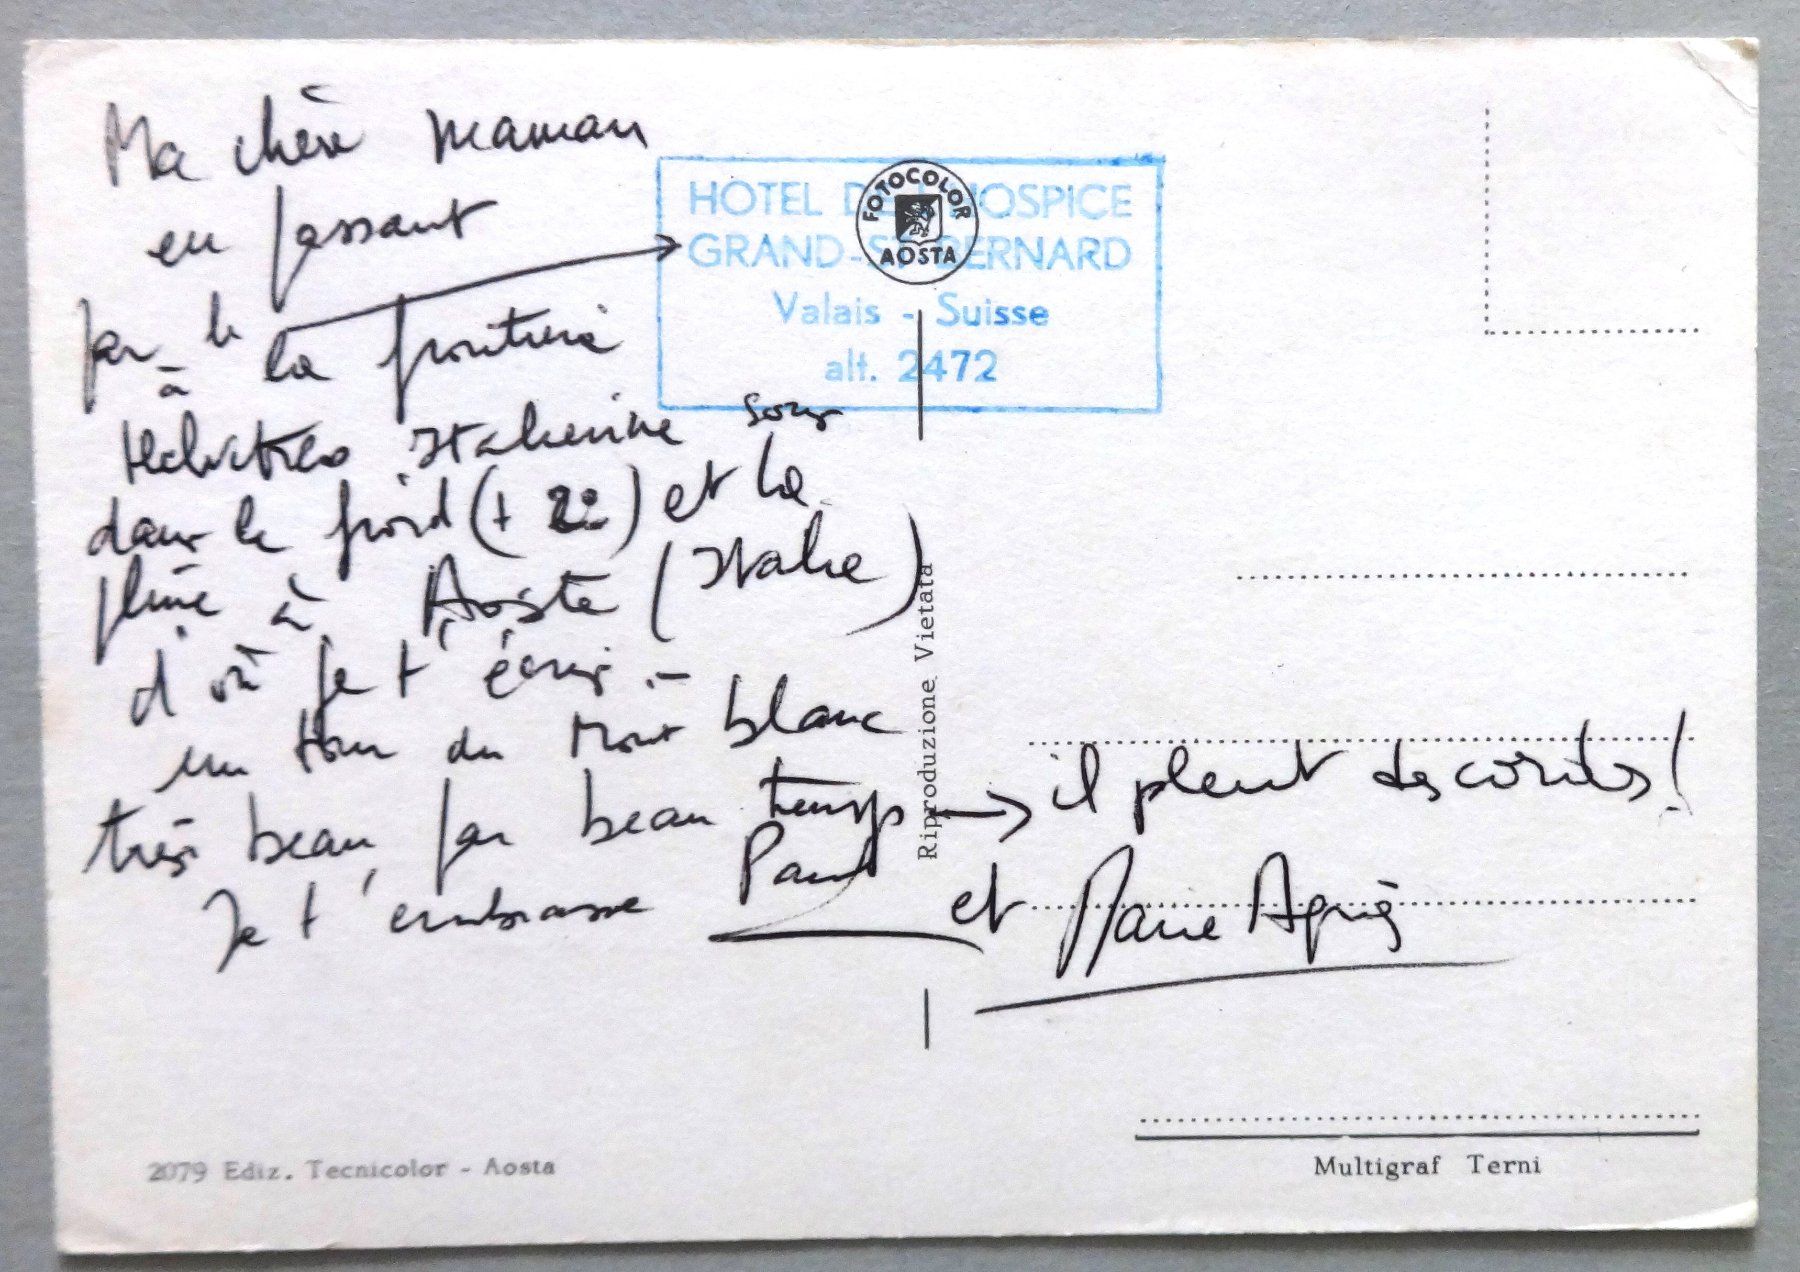 Ma chère maman
en passant
par le
à la frontière
Helvético Italienne sous
dans le froid (+ 2°) et la
pluie à Aoste (Italie)
d'où je t'écris.-
un tour du Mont blanc
très beau, par beau temps → il pleut des cordes!
Je t'embrasse Paul
et Marie Agnès
HOTEL DE L'HOSPICE
GRAND-ST-BERNARD
Valais - Suisse
alt. 2472
FOTOCOLOR
AOSTA
Riproduzione Vietata
2079 Ediz. Tecnicolor - Aosta
Multigraf Terni